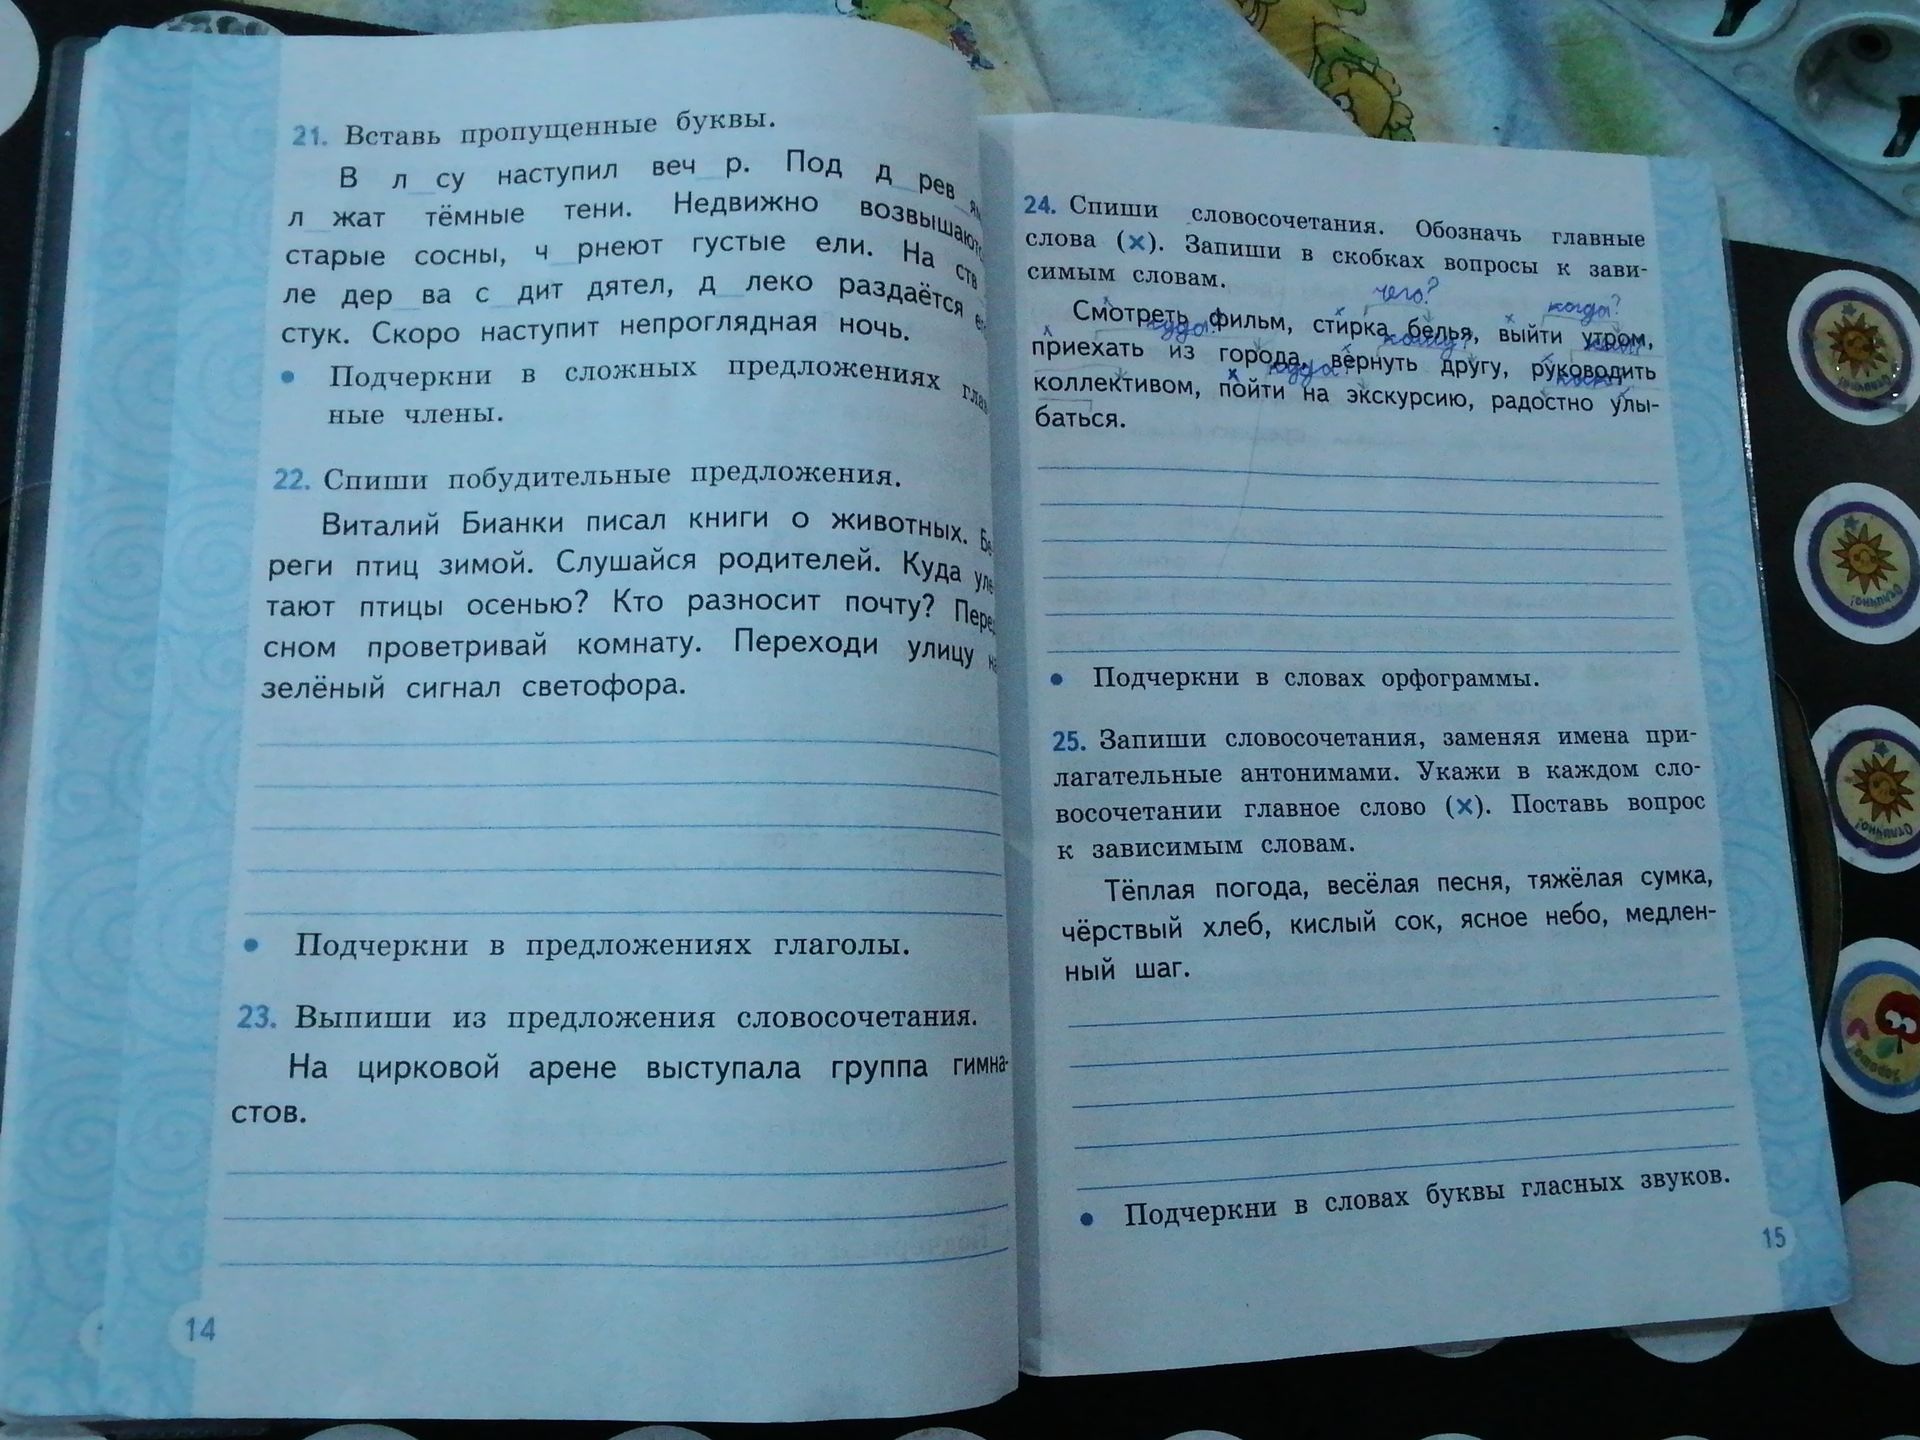 21. Вставь пропущенные буквы.
В л_су наступил веч_р. Под д_рев_ям
л_жат тёмные тени. Недвижно возвышают
старые сосны, ч_рнеют густые ели. На ств
ле дер_ва с_дит дятел, д_леко раздаётся ег
стук. Скоро наступит непроглядная ночь.
• Подчеркни в сложных предложениях глав
ные члены.
22. Спиши побудительные предложения.
Виталий Бианки писал книги о животных. Бе
реги птиц зимой. Слушайся родителей. Куда уле
тают птицы осенью? Кто разносит почту? Перед
сном проветривай комнату. Переходи улицу на
зелёный сигнал светофора.
• Подчеркни в предложениях глаголы.
23. Выпиши из предложения словосочетания.
На цирковой арене выступала группа гимна-
стов.
14
24. Спиши словосочетания. Обозначь главные
слова (×). Запиши в скобках вопросы к зави-
симым словам.
чего? когда?
Смотреть фильм, стирка белья, выйти утром,
кому?
приехать из города, вернуть другу, руководить
куда?
коллективом, пойти на экскурсию, радостно улы-
баться.
• Подчеркни в словах орфограммы.
25. Запиши словосочетания, заменяя имена при-
лагательные антонимами. Укажи в каждом сло-
восочетании главное слово (×). Поставь вопрос
к зависимым словам.
Тёплая погода, весёлая песня, тяжёлая сумка,
чёрствый хлеб, кислый сок, ясное небо, медлен-
ный шаг.
• Подчеркни в словах буквы гласных звуков.
15
Отлично!
Отлично!
Отлично!